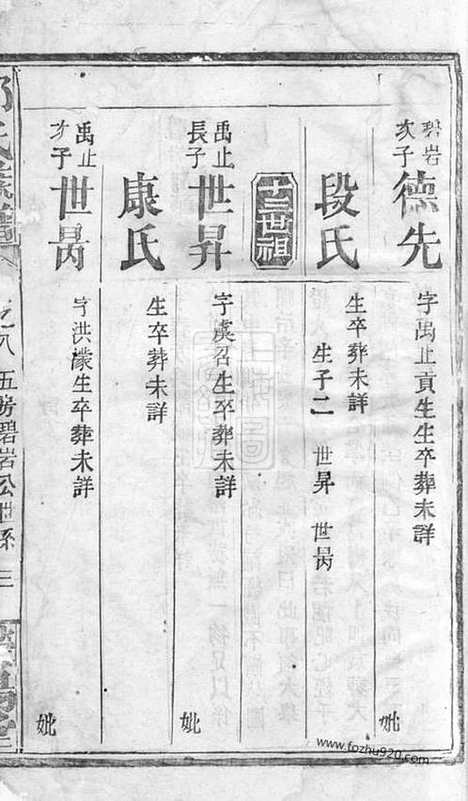 碧岩
次子
德先
字禹止貢生生卒葬未詳
妣
段氏
生卒葬未詳
生子二 世昇 世昺
十三世祖
禹止
長子
世昇
字虞召生卒葬未詳
妣
康氏
生卒葬未詳
禹止
次子
世昺
字洪濛生卒葬未詳
妣
卷之八 五房碧岩公世系 三
www.fozhu920.com